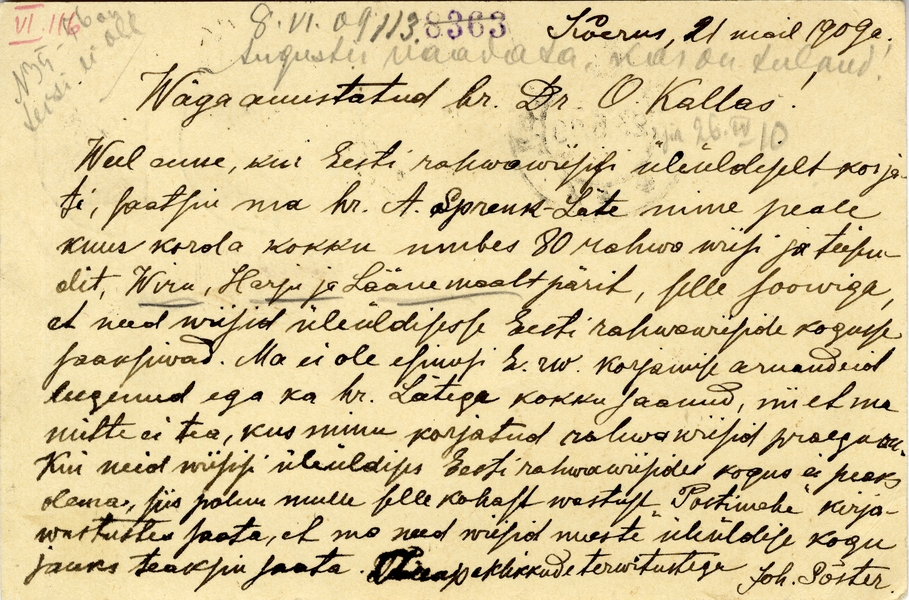 VI. 116
8. VI. 09 113. 8363
Koerus, 21 mail 1909a.
Augustis vaadata, kas on tulnud!
Wäga auustatud hr. Dr. O. Kallas!
26. IV 10
Weel enne, kui Eesti rahwawiisisi üleüldiselt korja-
ti, saatsin ma hr. A. Sprenk-Läte nime peale
kuus korda kokku umbes 80 rahwa wiisi ja teisen-
dit, Wiru, Harju ja Läänemaalt pärit, selle soowiga,
et need wiisid üleüldisesse Eesti rahwawiiside kogusse
saaksiwad. Ma ei ole esimesi E. rw. korjamise aruandeid
lugenud ega ka hr. Lätega kokku saanud, nii et ma
mitte ei tea, kus minu korjatud rahwawiisid praegu on.
Kui neid wiisisi üleüldises Eesti rahwawiiside kogus ei peaks
olema, siis palun mulle selle kohast wastust "Postimehe" kirja-
wastustes saata, et ma need wiisid uueste üleüldise kogu
jauks teaksin saata. apeklikkude terwitustega
Joh. Pöster.